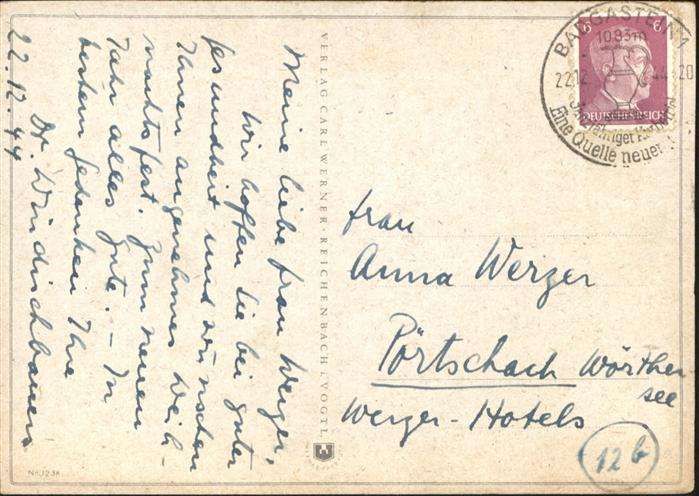 Meine liebe Frau Werzer,
Wir hoffen Sie bei guter
Gesundheit und wünschen
Ihnen angenehmes Weih-
nachtsfest. Zum neuen
Jahr alles Gute. – In
bestem Gedenken Ihre
Dr. Windischbauers
22.12.44
VERLAG CARL WERNER · REICHENBACH I. VOGTL
No. 1238
BADGASTEIN 1
1083m
22.12. 44.-20
DEUTSCHES REICH
jähriger
Eine Quelle neuer
Frau
Anna Werzer
Pörtschach Wörther
see
Werzer-Hotels
12b